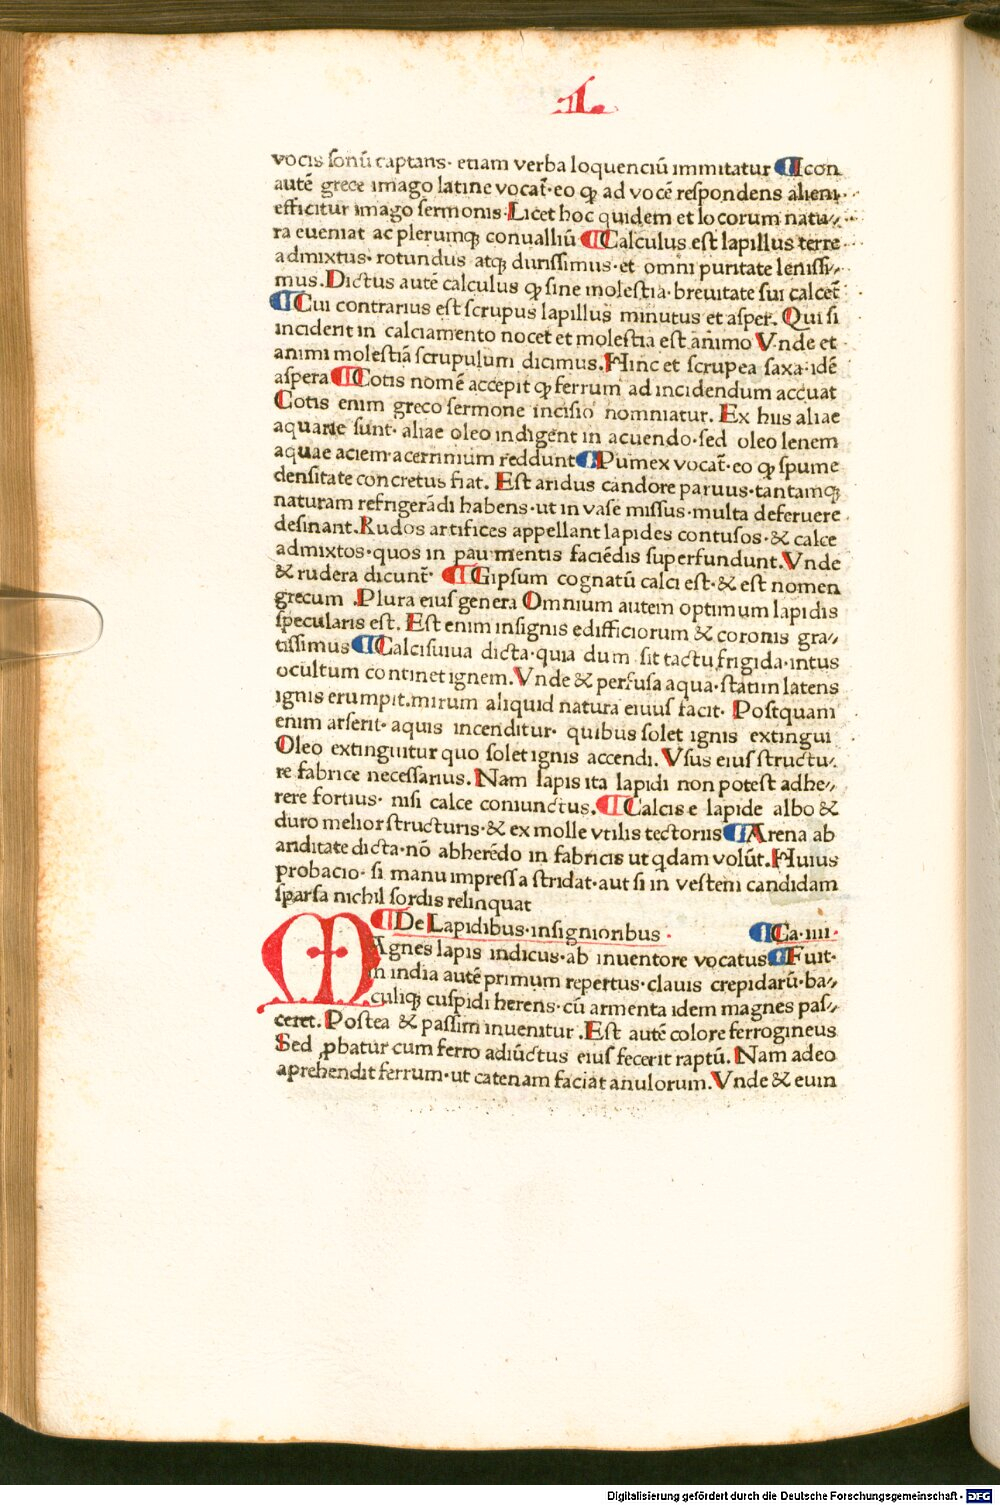 .L.
vocis sonū captans· etiam verba loquenciū immitatur ¶Icon
autē grece imago latine vocat̄·eo ꝙ ad vocē respondens alieni·
efficitur imago sermonis·Licet hoc quidem et locorum natu//
ra eueniat ac plerumqꝫ conualliū ¶Calculus est lapillus terre
admixtus· rotundus atqꝫ durissimus·et omni puritate lenissi//
mus.Dictus autē calculus ꝙ sine molestia·breuitate sui calcet̄
¶Cui contrarius est scrupus lapillus minutus et asper. Qui si
inciderit in calciamento nocet et molestia est animo Vnde et
animi molestiā scrupulum dicimus.Hinc et scrupea saxa·idē
aspera ¶Cotis nomē accepit ꝙ ferrum ad incidendum accuat
Cotis enim greco sermone incisio nominatur. Ex hiis aliae
aquarie sunt· aliae oleo indigent in acuendo·sed oleo lenem
aquae aciem acerrimium reddunt ¶Pumex vocat̄·eo ꝙ spume
densitate concretus fiat. Est aridus candore paruus·tantamqꝫ
naturam refrigerādi habens·ut in vase missus·multa deferuere
desinant.Rudos artifices appellant lapides contusos·& calce
admixtos·quos in paumentis faciēdis superfundunt.Vnde
& rudera dicunt̄· ¶Gipsum cognatū calci est·& est nomen
grecum .Plura eius genera Omnium autem optimum lapidis
specularis est. Est enim insignis edifficiorum & coronis gra//
tissimus ¶Calcisuiua dicta·quia dum sit tactu frigida·intus
ocultum continet ignem.Vnde & perfusa aqua·statim latens
ignis erumpit.mirum aliquid natura eiuus facit· Postquam
enim arserit· aquis incenditur· quibus solet ignis extingui
Oleo extinguitur quo solet ignis accendi. Vsus eius structu//
re fabrice necessarius. Nam lapis ita lapidi non potest adhe//
rere fortius· nisi calce coniunctus. ¶Calcis e lapide albo &
duro melior structuris·& ex molle vtilis tectoriis ¶Arena ab
ariditate dicta·nō abherēdo in fabricis ut qdam volūt.Huius
probacio· si manu impressa stridat·aut si in vestem candidam
sparsa nichil sordis relinquat
¶De Lapidibus·insignioribus· ¶Ca·iiii·
MAgnes lapis indicus·ab inuentore vocatus ¶Fuit·
in india autē primum repertus·clauis crepidarū·ba//
culiqꝫ cuspidi herens·cū armenta idem magnes pas//
ceret. Postea & passim inuenitur .Est autē colore ferrogineus
Sed ꝓbatur cum ferro adiūctus eius fecerit raptū. Nam adeo
aprehendit ferrum·ut catenam faciat anulorum.Vnde & eum
Digitalisierung gefördert durch die Deutsche Forschungsgemeinschaft - DFG